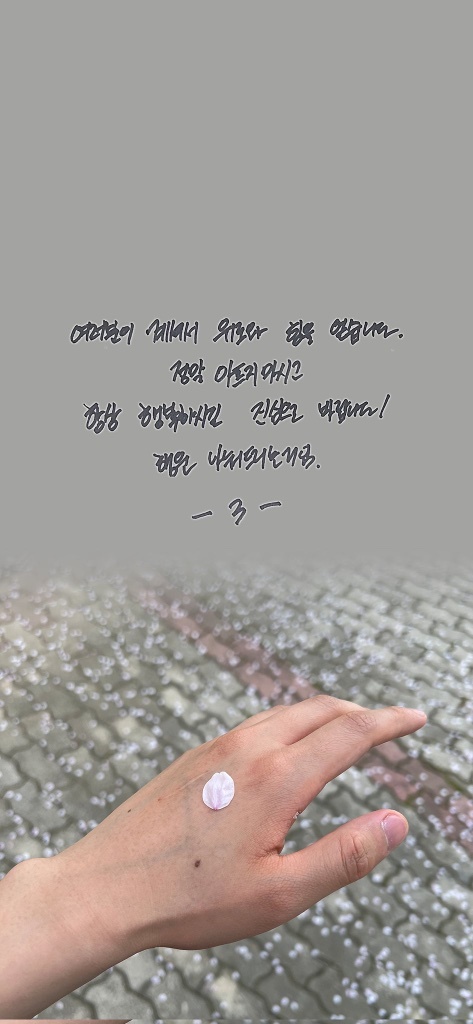 여러분이 계셔서 위로와 힘을 얻습니다.
정말 아프지마시고
항상 행복하시길 진심으로 바랍니다!
행운
- 3 -